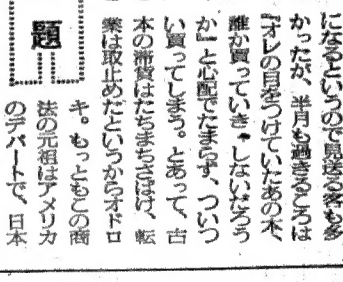 になるというので見送る客も多
かったが、半月も過ぎるころは
『オレの目をつけていたあの本、
誰か買っていきはしないだろう
か』と心配でたまらず、ついつ
い買ってしまう。とあって、古
本の滞貨はたちまちさばけ、転
業は取止めだというからオドロ
キ。もっともこの商
法の元祖はアメリカ
のデパートで、日本
題